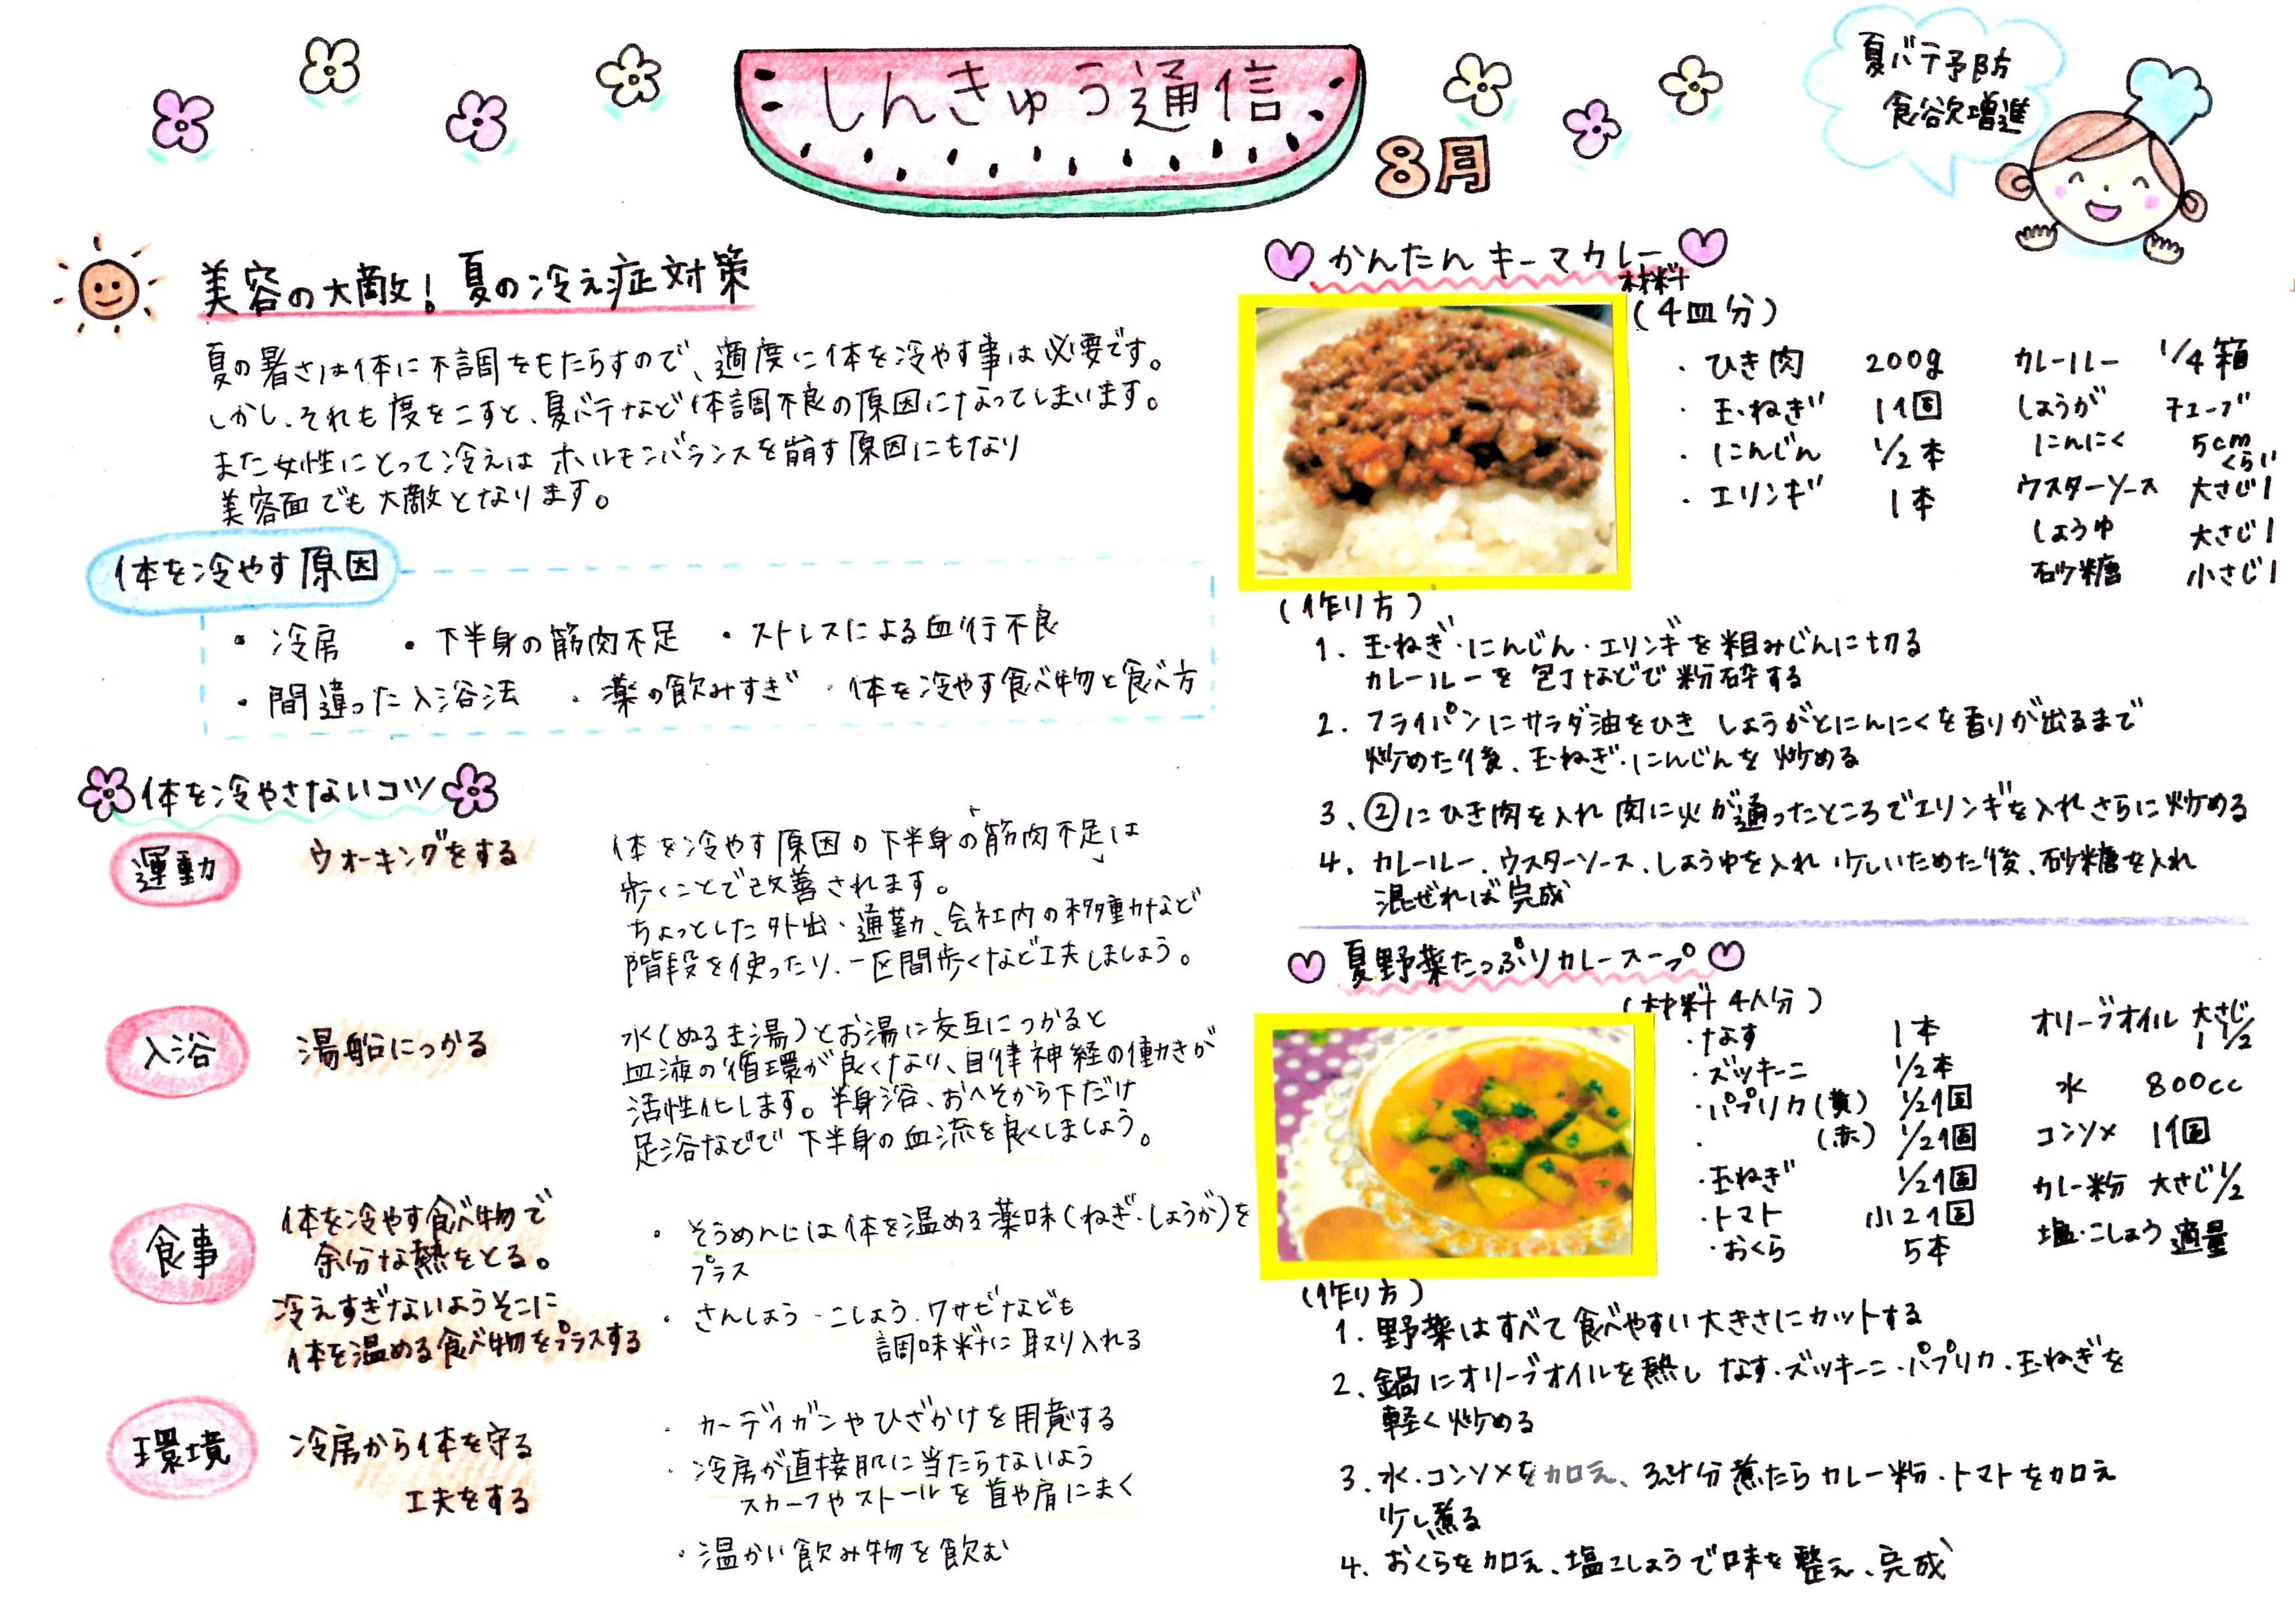 しんきゅう通信
8月
夏バテ予防
食欲増進
美容の大敵！夏の冷え症対策
夏の暑さは体に不調をもたらすので、適度に体を冷やす事は必要です。
しかし、それも度をこすと、夏バテなど体調不良の原因になってしまいます。
また女性にとって冷えはホルモンバランスを崩す原因にもなり
美容面でも大敵となります。
体を冷やす原因
・冷房 ・下半身の筋肉不足 ・ストレスによる血行不良
・間違った入浴法 ・薬の飲みすぎ ・体を冷やす食べ物と食べ方
体を冷やさないコツ
運動
ウォーキングをする
体を冷やす原因の下半身の筋肉不足は
歩くことで改善されます。
ちょっとした外出・通勤、会社内の移動など
階段を使ったり、一区間歩くなど工夫しましょう。
入浴
湯船につかる
水(ぬるま湯)とお湯に交互につかると
血液の循環が良くなり、自律神経の働きが
活性化します。半身浴、おへそから下だけ
足浴などで下半身の血流を良くしましょう。
食事
体を冷やす食べ物で
余分な熱をとる。
冷えすぎないようそこに
体を温める食べ物をプラスする
・そうめんには体を温める薬味(ねぎ・しょうが)を
プラス
・さんしょう・こしょう・ワサビなども
調味料に取り入れる
環境
冷房から体を守る
工夫をする
・カーディガンやひざかけを用意する
・冷房が直接肌に当たらないよう
スカーフやストールを首や肩にまく
・温かい飲み物を飲む
かんたんキーマカレー
材料
(4皿分)
・ひき肉 200g カレールー 1/4箱
・玉ねぎ 1個 しょうが チューブ
・にんじん 1/2本 にんにく 5cmくらい
・エリンギ 1本 ウスターソース 大さじ1
しょうゆ 大さじ1
砂糖 小さじ1
(作り方)
1. 玉ねぎ・にんじん・エリンギを粗みじんに切る
カレールーを包丁などで粉砕する
2. フライパンにサラダ油をひき しょうがとにんにくを香りが出るまで
炒めた後、玉ねぎ・にんじんを炒める
3、②にひき肉を入れ肉に火が通ったところでエリンギを入れさらに炒める
4. カレールー、ウスターソース、しょうゆを入れ 少しいためた後、砂糖を入れ
混ぜれば完成
夏野菜たっぷりカレースープ
(材料 4人分)
・なす 1本 オリーブオイル 大さじ1 1/2
・ズッキーニ 1/2本
・パプリカ(黄) 1/2個 水 800cc
・(赤) 1/2個 コンソメ 1個
・玉ねぎ 1/2個 カレー粉 大さじ1/2
・トマト 小2個
・おくら 5本 塩・こしょう 適量
(作り方)
1. 野菜はすべて食べやすい大きさにカットする
2. 鍋にオリーブオイルを熱し なす・ズッキーニ・パプリカ・玉ねぎを
軽く炒める
3. 水・コンソメを加え、3分煮たらカレー粉・トマトを加え
少し煮る
4. おくらを加え、塩こしょうで味を整え、完成